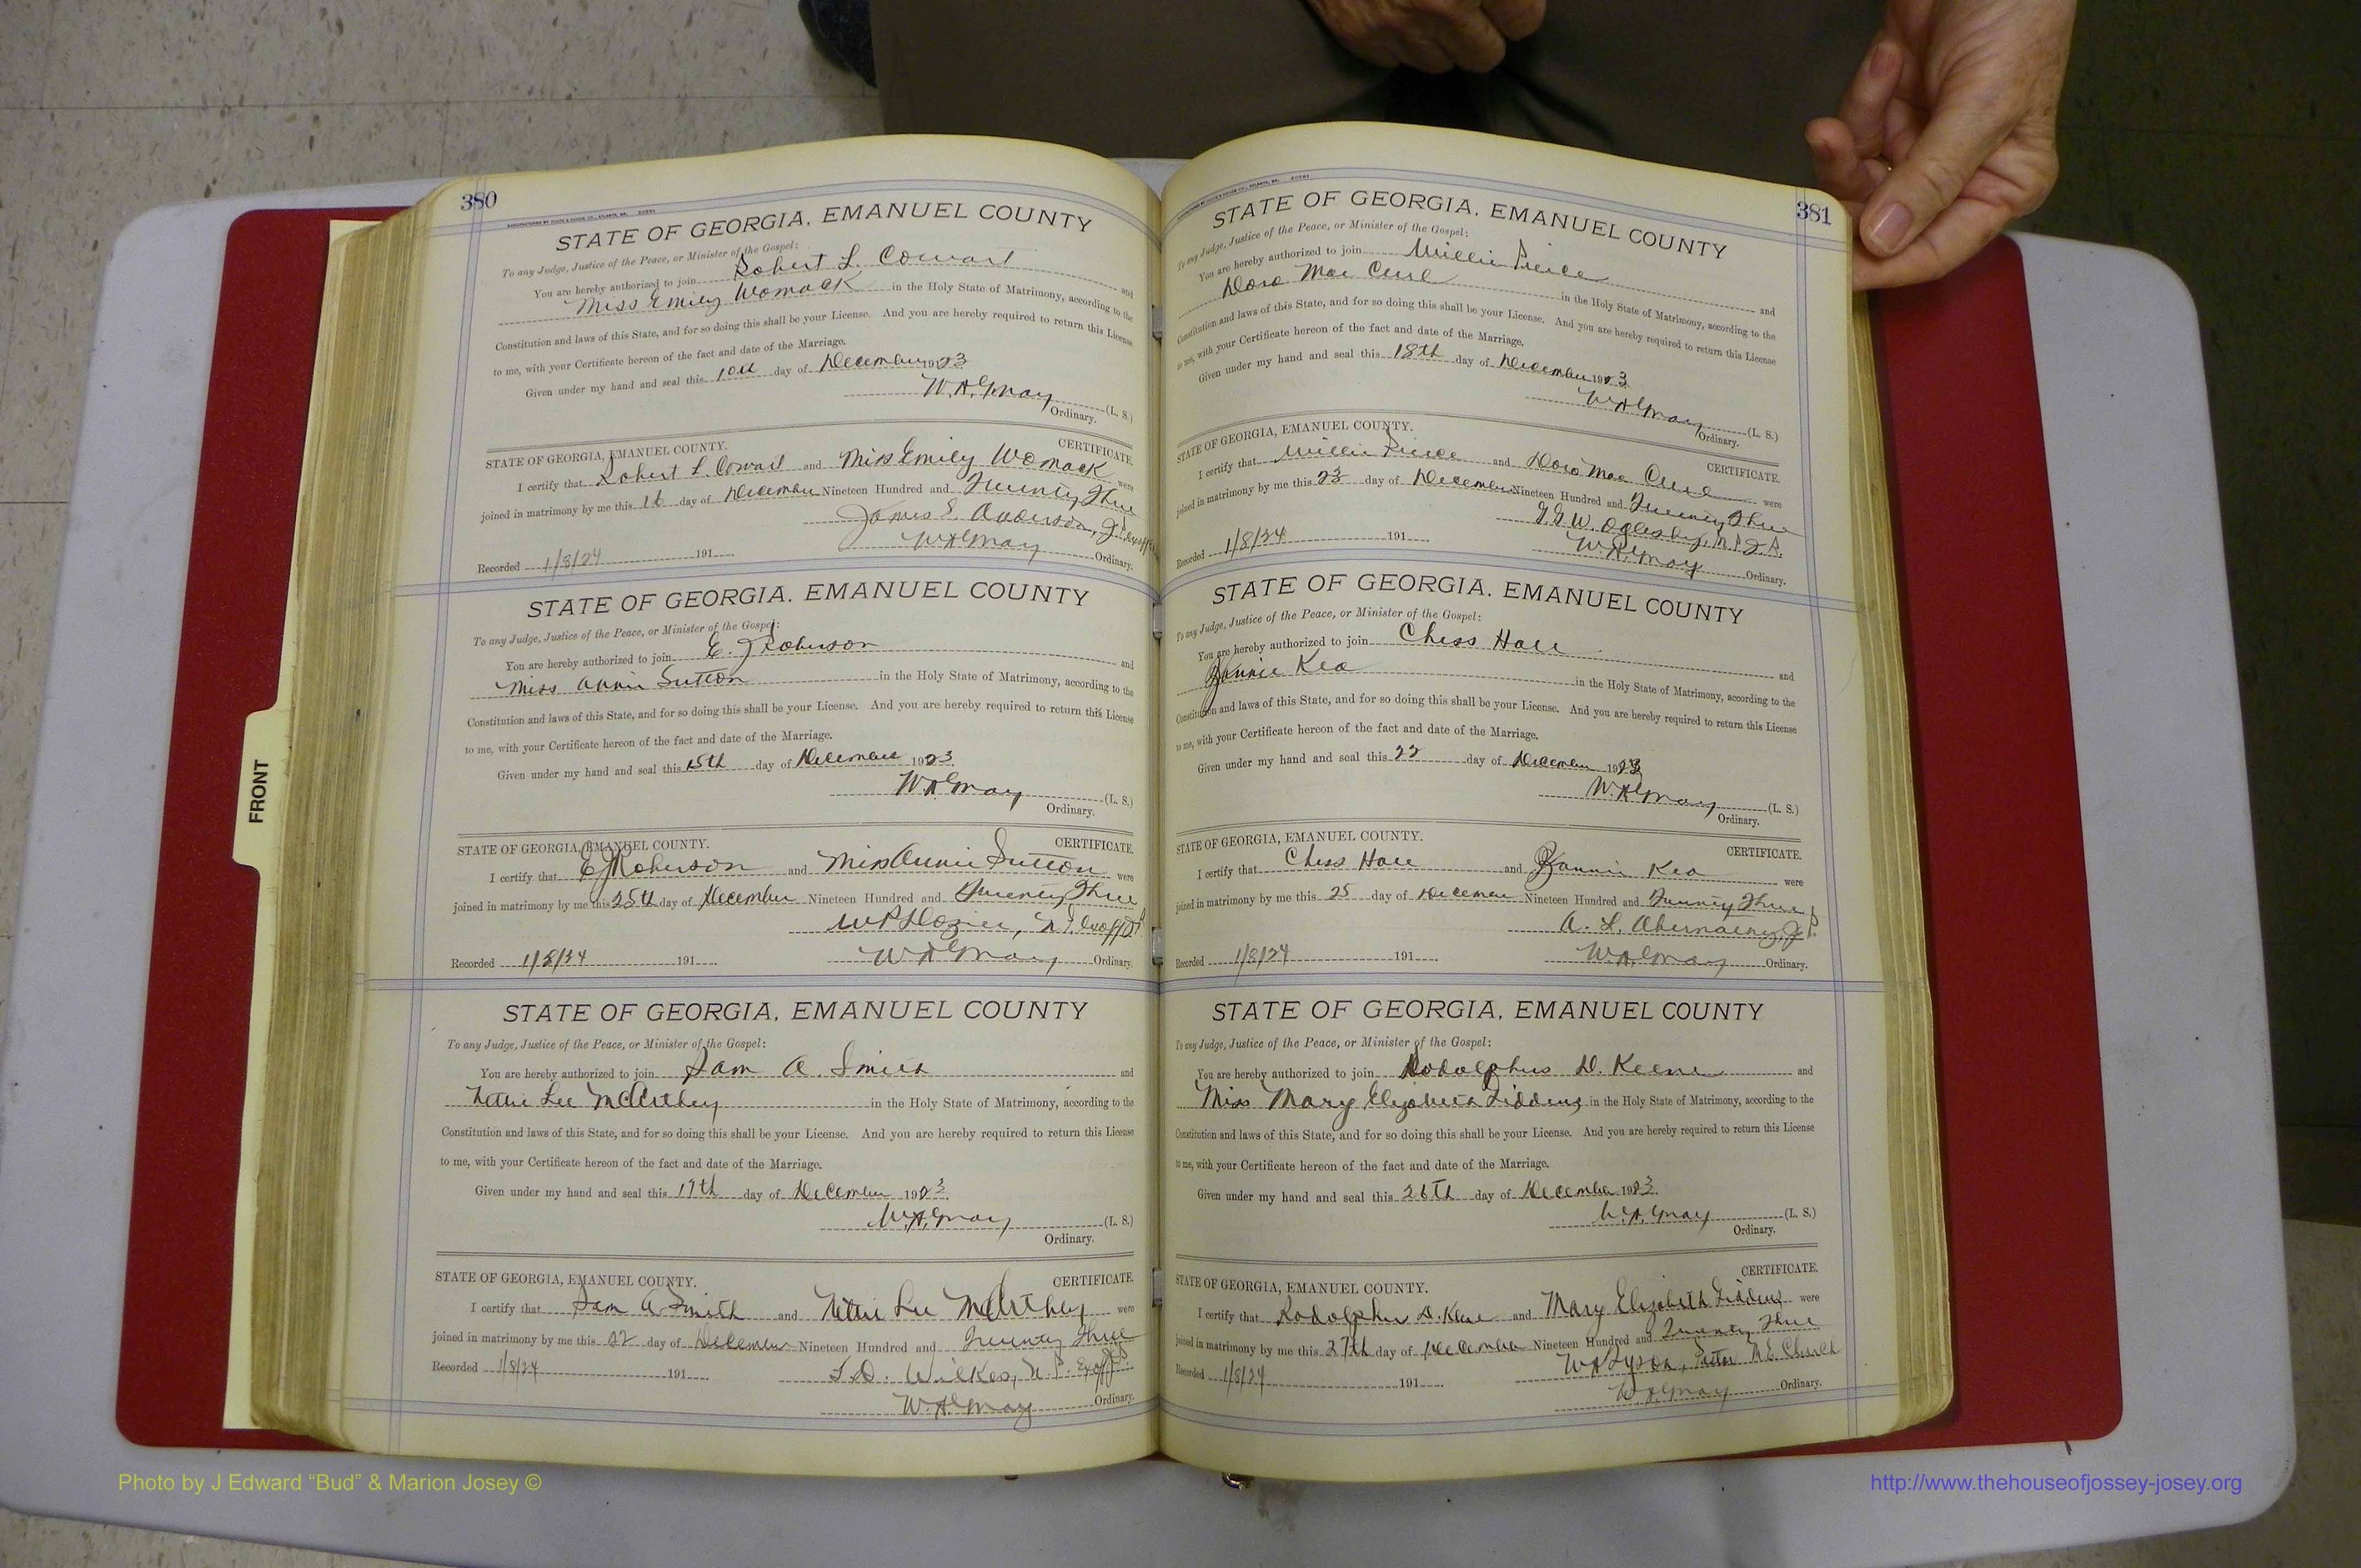 380
STATE OF GEORGIA, EMANUEL COUNTY
To any Judge, Justice of the Peace, or Minister of the Gospel:
You are hereby authorized to join Robert L. Cowart and
Miss Emily Womack in the Holy State of Matrimony, according to the
Constitution and laws of this State, and for so doing this shall be your License. And you are hereby required to return this License
to me, with your Certificate hereon of the fact and date of the Marriage.
Given under my hand and seal this 10th day of December 1923
(L. S.)
Ordinary.
STATE OF GEORGIA, EMANUEL COUNTY. CERTIFICATE.
I certify that Robert L. Cowart and Miss Emily Womack were
joined in matrimony by me this 16 day of December Nineteen Hundred and Twenty Three
James E. Anderson,
Recorded 1/8/24 191 Ordinary.
STATE OF GEORGIA, EMANUEL COUNTY
To any Judge, Justice of the Peace, or Minister of the Gospel:
You are hereby authorized to join E. J Roberson and
Miss Annie Sutton in the Holy State of Matrimony, according to the
Constitution and laws of this State, and for so doing this shall be your License. And you are hereby required to return this License
to me, with your Certificate hereon of the fact and date of the Marriage.
Given under my hand and seal this 15th day of December 1923
(L. S.)
Ordinary.
STATE OF GEORGIA, EMANUEL COUNTY. CERTIFICATE.
I certify that E J Roberson and Miss Annie Sutton were
joined in matrimony by me this 25th day of December Nineteen Hundred and Twenty Three
Recorded 1/8/24 191 Ordinary.
STATE OF GEORGIA, EMANUEL COUNTY
To any Judge, Justice of the Peace, or Minister of the Gospel:
You are hereby authorized to join Sam A. Smith and
Nettie Lee McArthey in the Holy State of Matrimony, according to the
Constitution and laws of this State, and for so doing this shall be your License. And you are hereby required to return this License
to me, with your Certificate hereon of the fact and date of the Marriage.
Given under my hand and seal this day of December 1923
(L. S.)
Ordinary.
STATE OF GEORGIA, EMANUEL COUNTY. CERTIFICATE.
I certify that Sam A. Smith and Nettie Lee McArthey were
joined in matrimony by me this 22 day of December Nineteen Hundred and Twenty Three
Recorded 1/8/24 191 Wilkes, N. P.
Ordinary.
381
STATE OF GEORGIA, EMANUEL COUNTY
To any Judge, Justice of the Peace, or Minister of the Gospel:
You are hereby authorized to join Millie Pierce and
Dora Mae Curl in the Holy State of Matrimony, according to the
Constitution and laws of this State, and for so doing this shall be your License. And you are hereby required to return this License
to me, with your Certificate hereon of the fact and date of the Marriage.
Given under my hand and seal this 18th day of December 1923
(L. S.)
Ordinary.
STATE OF GEORGIA, EMANUEL COUNTY. CERTIFICATE.
I certify that Millie Pierce and Dora Mae Curl were
joined in matrimony by me this 23 day of December Nineteen Hundred and Twenty Three
W. Oglesby,
Recorded 1/8/24 191 Ordinary.
STATE OF GEORGIA, EMANUEL COUNTY
To any Judge, Justice of the Peace, or Minister of the Gospel:
You are hereby authorized to join Chess Hall and
Fannie Kea in the Holy State of Matrimony, according to the
Constitution and laws of this State, and for so doing this shall be your License. And you are hereby required to return this License
to me, with your Certificate hereon of the fact and date of the Marriage.
Given under my hand and seal this 22 day of December 1923
(L. S.)
Ordinary.
STATE OF GEORGIA, EMANUEL COUNTY. CERTIFICATE.
I certify that Chess Hall and Fannie Kea were
joined in matrimony by me this 25 day of December Nineteen Hundred and Twenty Three
A. L. Abernathy, J P.
Recorded 1/8/24 191 Ordinary.
STATE OF GEORGIA, EMANUEL COUNTY
To any Judge, Justice of the Peace, or Minister of the Gospel:
You are hereby authorized to join Rodolphus D. Keene and
Miss Mary Elizabeth Giddens in the Holy State of Matrimony, according to the
Constitution and laws of this State, and for so doing this shall be your License. And you are hereby required to return this License
to me, with your Certificate hereon of the fact and date of the Marriage.
Given under my hand and seal this 26th day of December 1923
(L. S.)
Ordinary.
STATE OF GEORGIA, EMANUEL COUNTY. CERTIFICATE.
I certify that Rodolphus D. Keene and Mary Elizabeth Giddens were
joined in matrimony by me this 27th day of December Nineteen Hundred and Twenty Three
Pastor M. E. Church
Recorded 1/8/24 191 Ordinary.
FRONT
Photo by J Edward “Bud” & Marion Josey ©
http://www.thehouseofjossey-josey.org